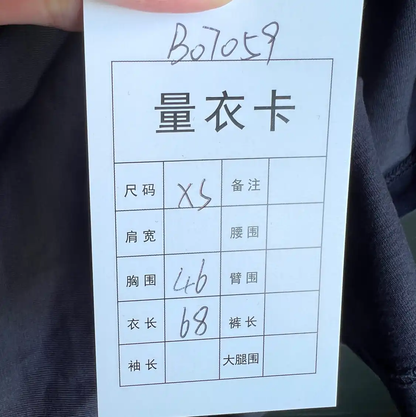 B07059
量衣卡
尺码 XS 备注
肩宽 腰围
胸围 46 臂围
衣长 68 裤长
袖长 大腿围